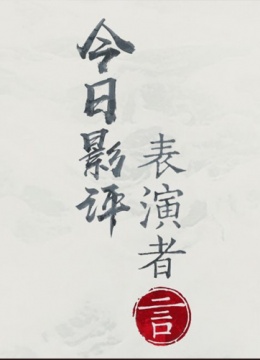 今日影评
表演者言